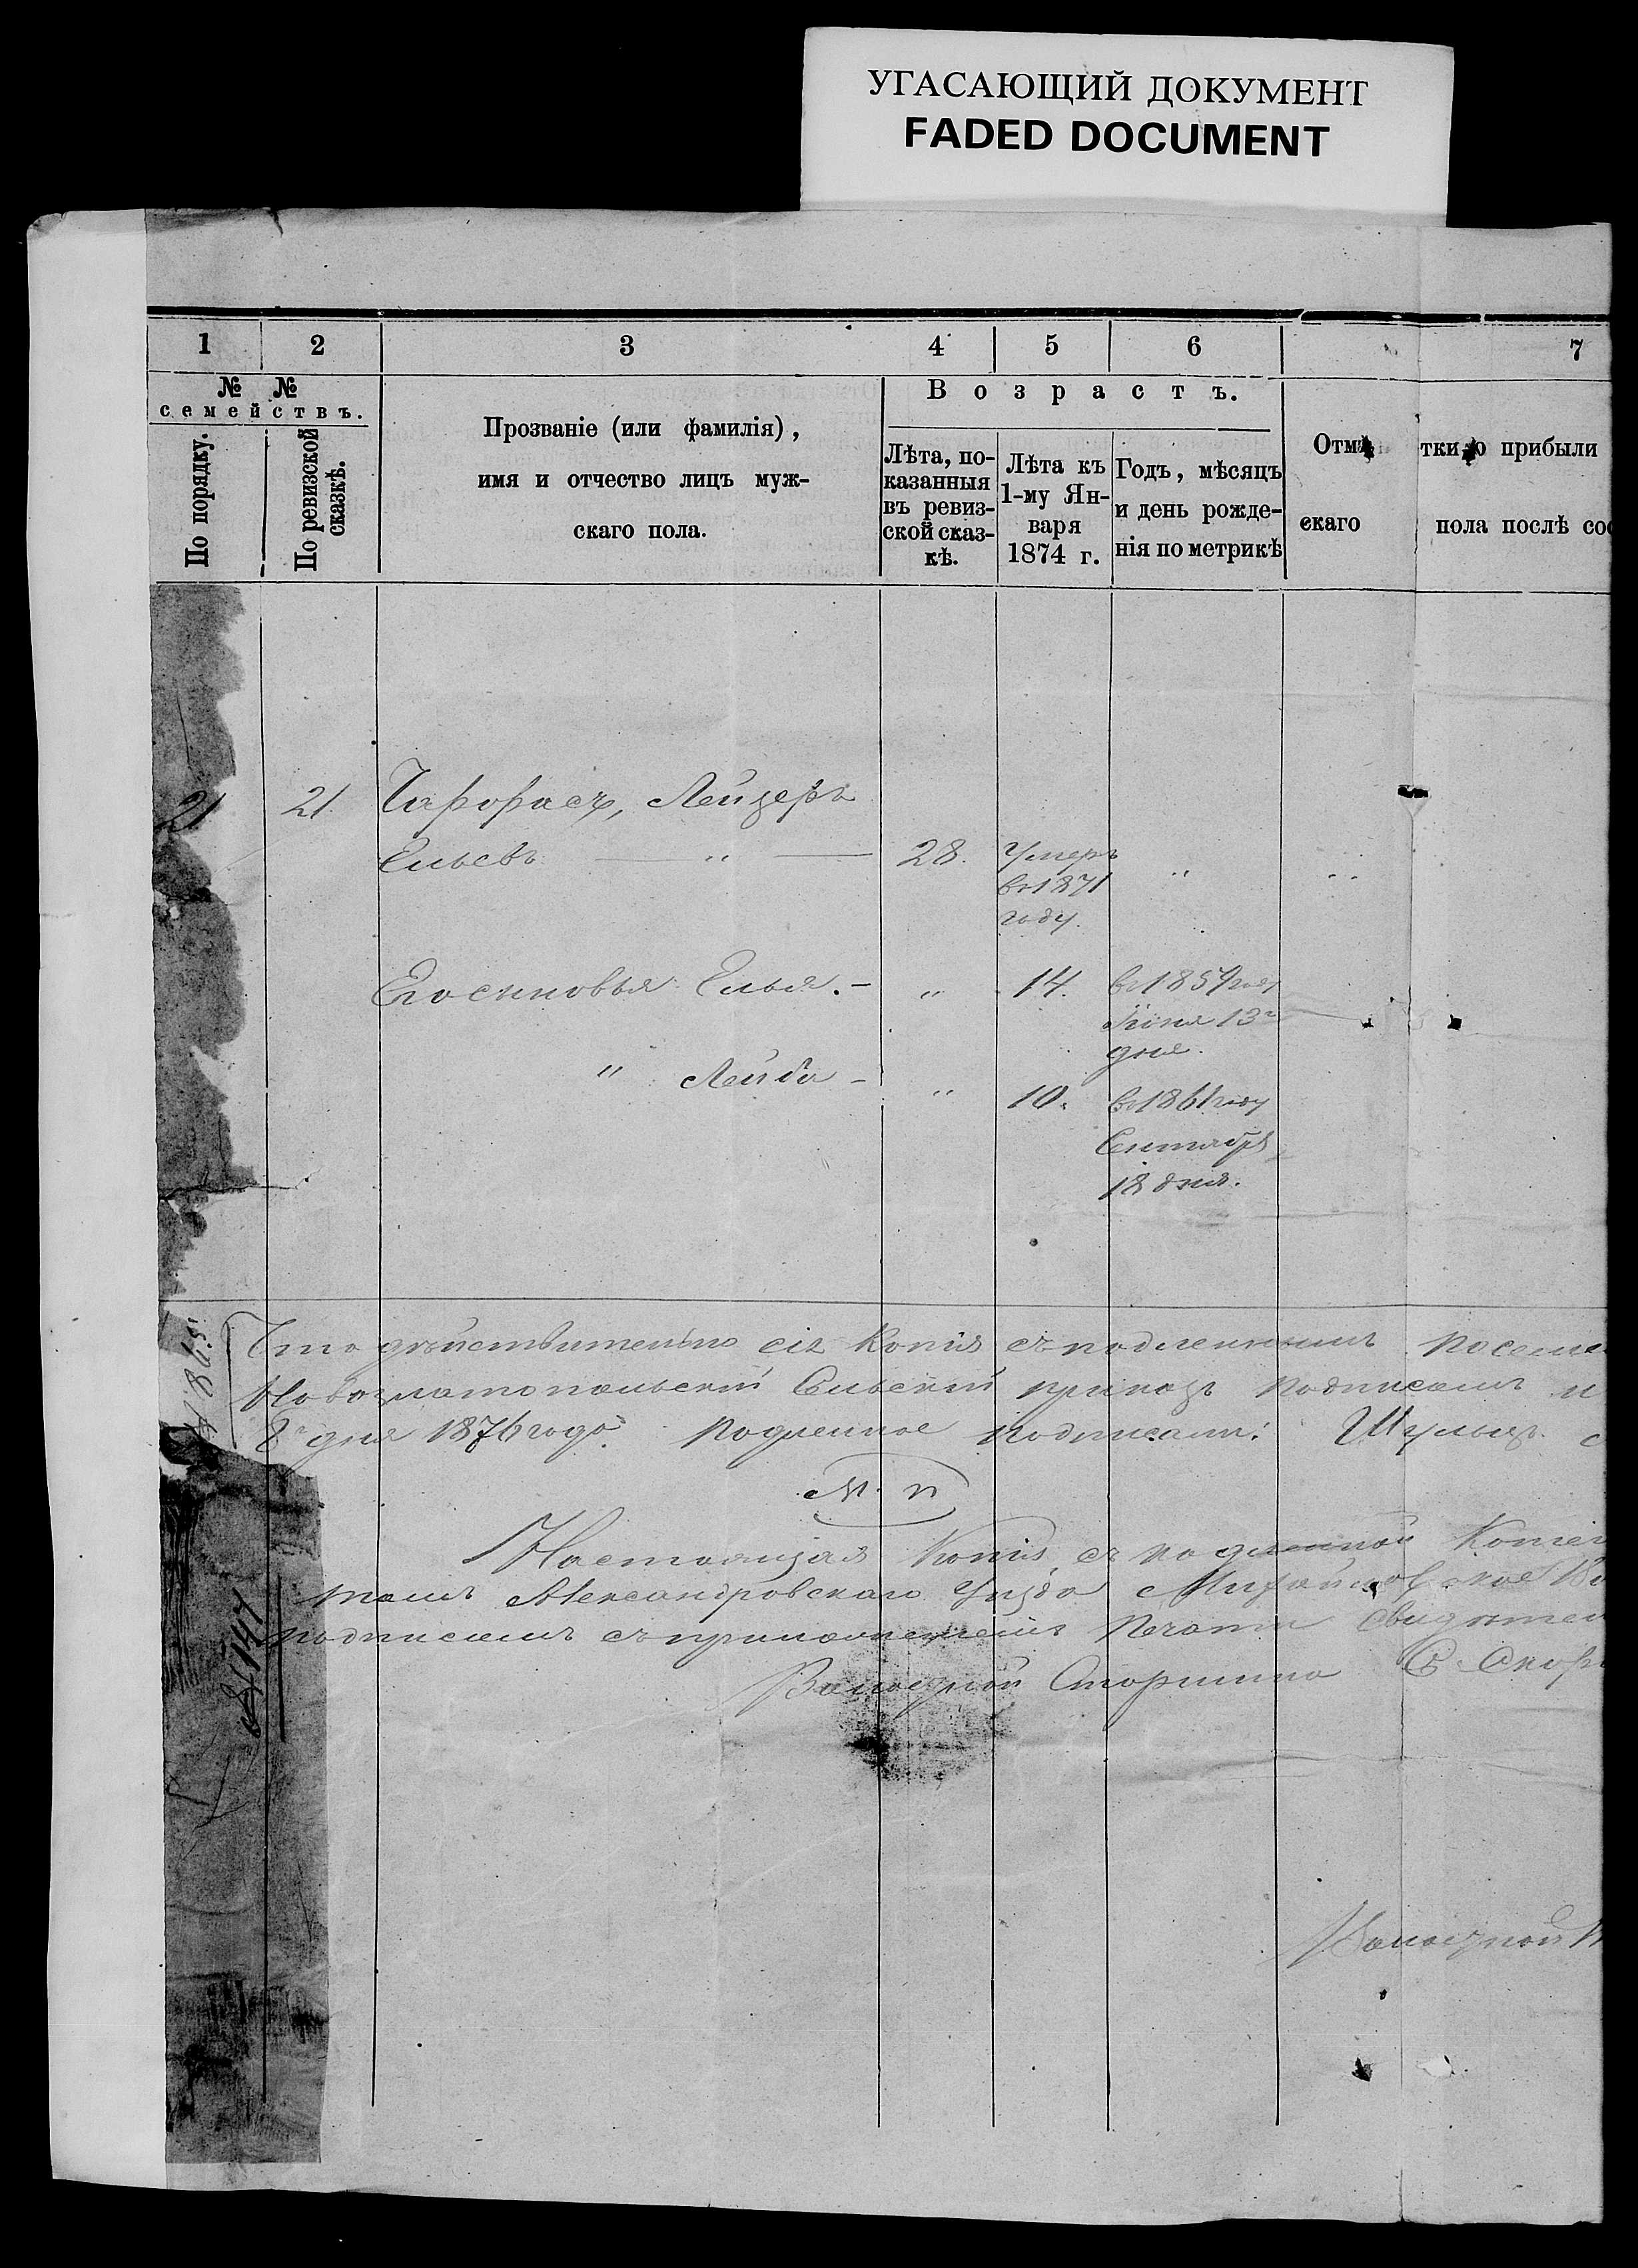 УГАСАЮЩИЙ ДОКУМЕНТ
FADED DOCUMENT
1 2 3 4 5 6 7
№ №
семействъ.
По порядку.
По ревизской сказкѣ.
Прозваніе (или фамилія),
имя и отчество лицъ муж-
скаго пола.
Возрастъ.
Лѣта, по-
казанныя
въ ревиз-
ской сказ-
кѣ.
Лѣта къ
1-му Ян-
варя
1874 г.
Годъ, мѣсяцъ
и день рожде-
нія по метрикѣ
Отмѣтки о прибыли
скаго пола послѣ сос
21 21. Лейзеръ
Ельевъ — " — 28. Умеръ " "
въ 1871
году.
Его сыновья Елья. — " 14. въ 1859 году
Іюня 13го
дня.
" Лейба — " 10. въ 1861 году
Сентября
18 дня.
Что дѣйствительно сія Копія съ подленнымъ посеме
Новозлатопольскій Сельскій приказъ подписомъ и
8го дня 1876 года. Подленное подписали: Шульцъ
М. п
Настоящая Копія съ подленной Копіей
томъ Александровскаго Уѣзда Михайловское Во
подписомъ съ приложеніемъ Печати свидѣтел
Волостной Старшина
№ 147
Волостной